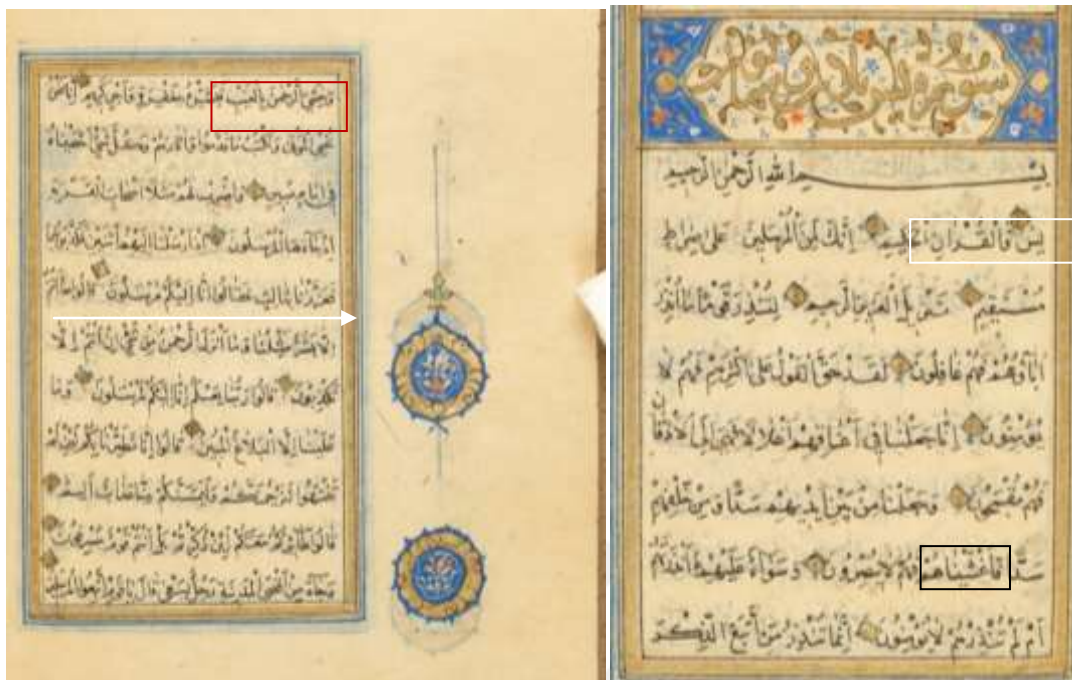 سورة يس
بسم الله الرحمن الرحيم
يس والقرآن الحكيم إنك لمن المرسلين على صراط
مستقيم تنزيل العزيز الرحيم لتنذر قوما ما أنذر
اباؤهم فهم غافلون لقد حق القول على أكثرهم فهم لا
يؤمنون إنا جعلنا في أعناقهم أغلالا فهي إلى الأذقان
فهم مقمحون وجعلنا من بين أيديهم سدا ومن خلفهم
سدا فأغشيناهم فهم لا يبصرون وسواء عليهم أأنذرتهم
أم لم تنذرهم لا يؤمنون إنما تنذر من اتبع الذكر
وخشي الرحمن بالغيب فبشره بمغفرة وأجر كريم إنا نحن
نحيي الموتى ونكتب ما قدموا واثارهم وكل شيء أحصيناه
في إمام مبين واضرب لهم مثلا أصحاب القرية
إذ جاءها المرسلون إذ أرسلنا إليهم اثنين فكذبوهما
فعززنا بثالث فقالوا إنا إليكم مرسلون قالوا ما أنتم
إلا بشر مثلنا وما أنزل الرحمن من شيء إن أنتم إلا
تكذبون قالوا ربنا يعلم إنا إليكم لمرسلون وما
علينا إلا البلاغ المبين قالوا إنا تطيرنا بكم لئن لم
تنتهوا لنرجمنكم وليمسنكم منا عذاب أليم
قالوا طائركم معكم أئن ذكرتم بل أنتم قوم مسرفون
وجاء من أقصى المدينة رجل يسعى قال يا قوم اتبعوا المرسلين